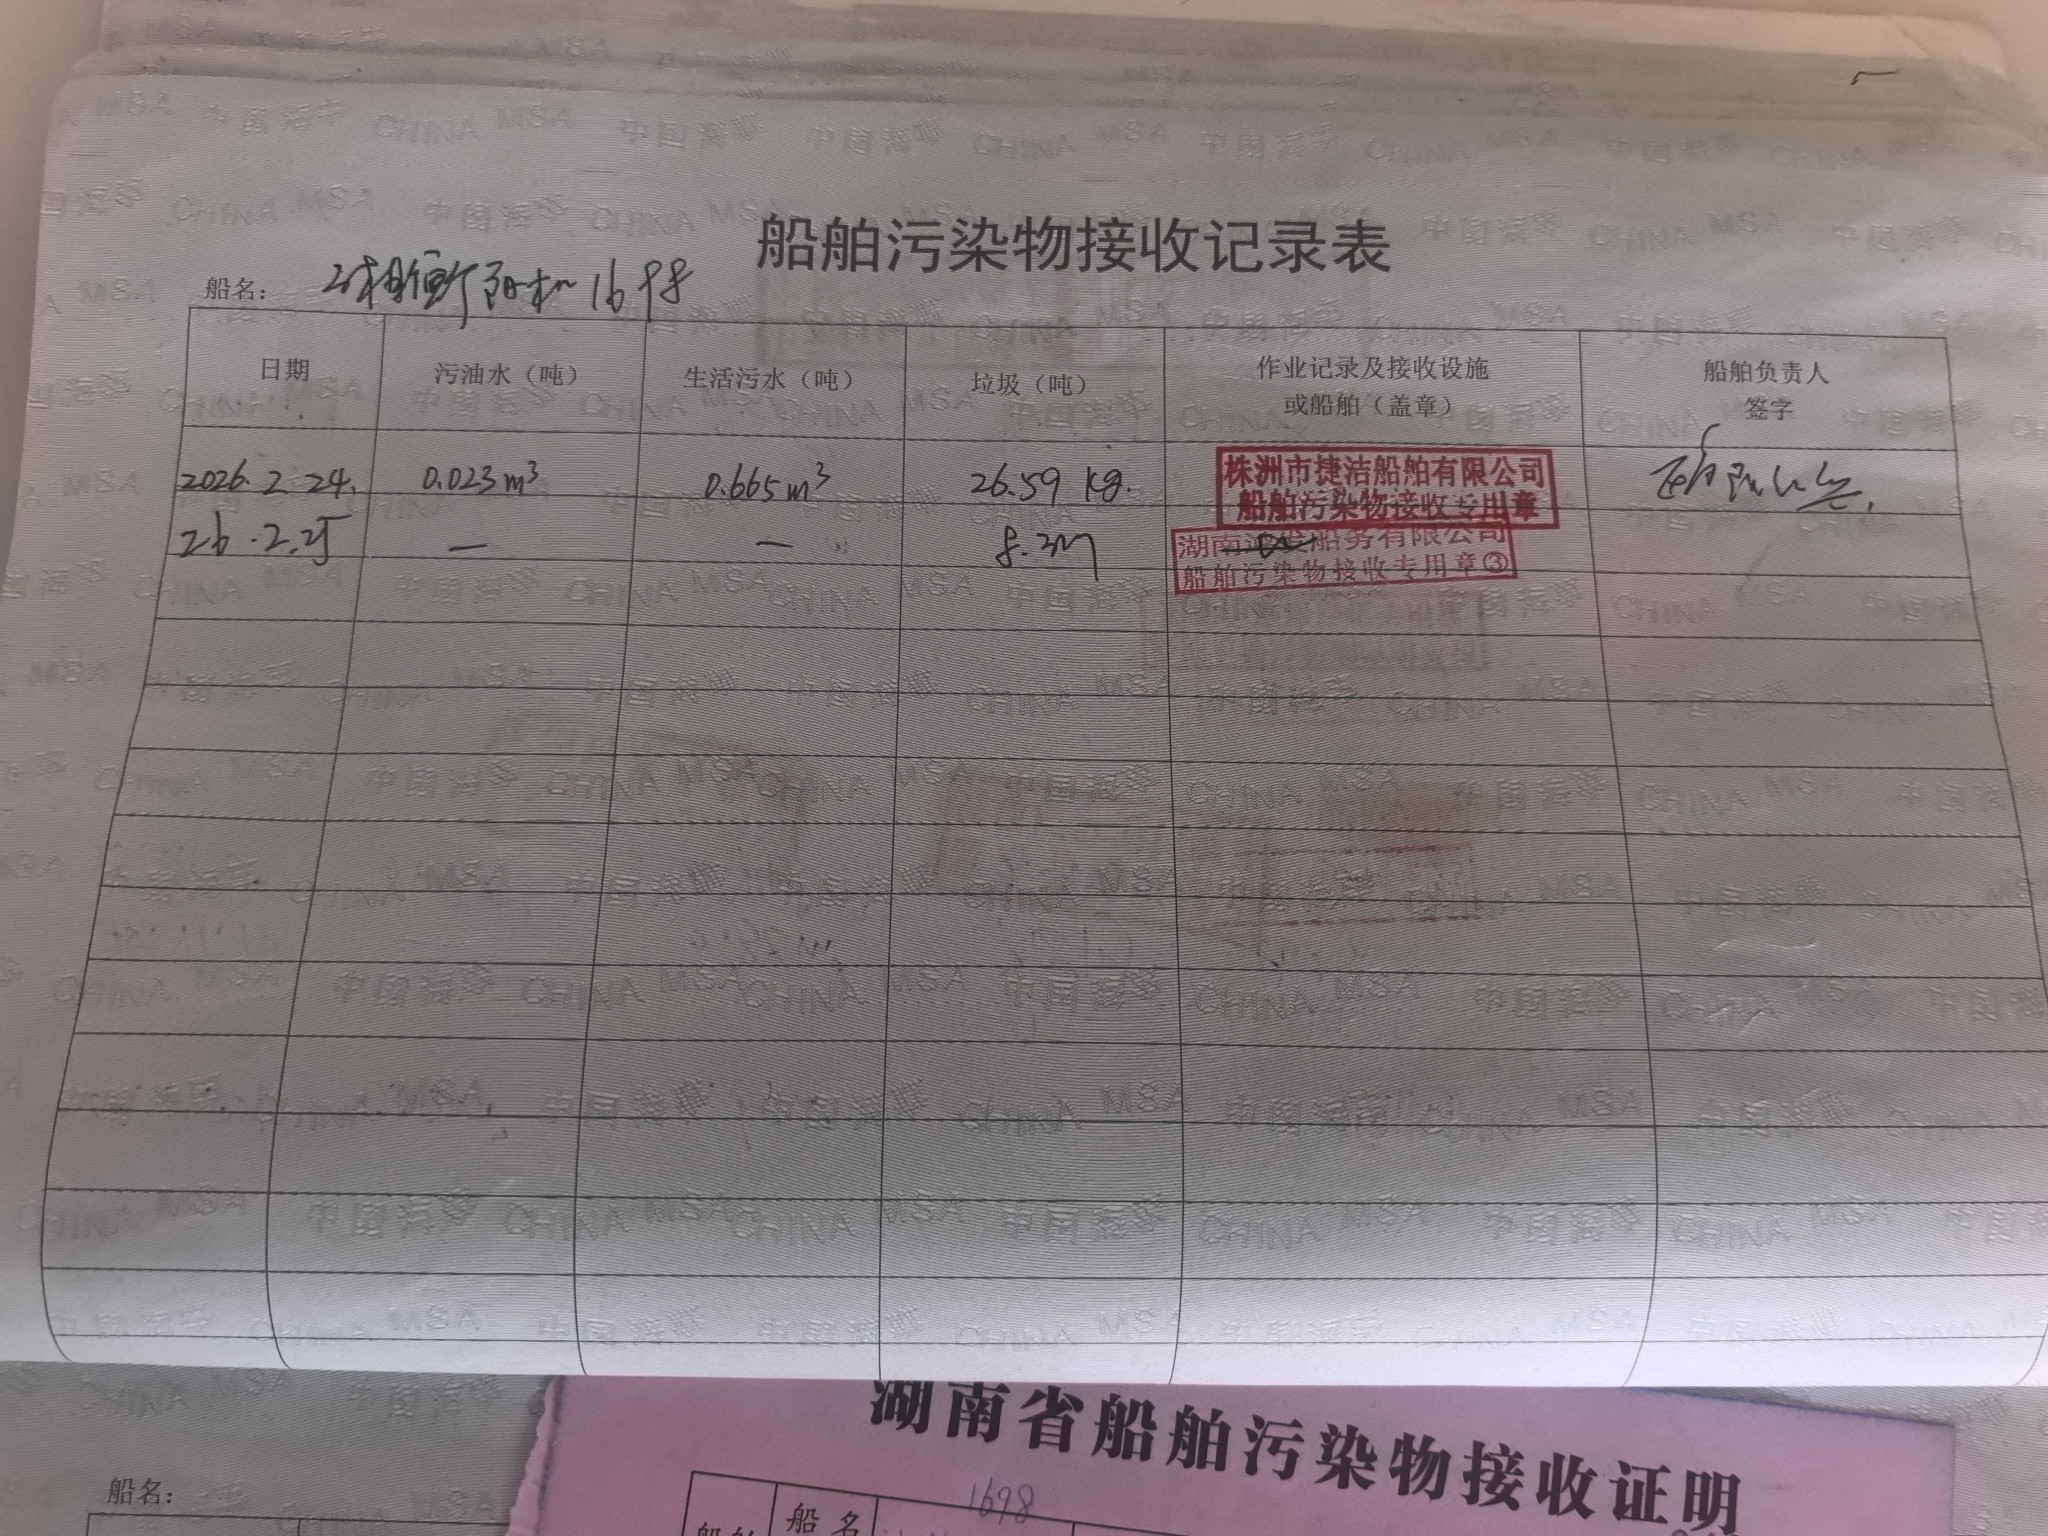 船舶污染物接收记录表
船名： 湘衡阳机1698
日期 污油水（吨） 生活污水（吨） 垃圾（吨） 作业记录及接收设施或船舶（盖章） 船舶负责人签字
2026.2.24. 0.023m³ 0.665m³ 26.59 kg.
株洲市捷洁船舶有限公司
船舶污染物接收专用章
26.2.25 — —
湖南 船务有限公司
船舶污染物接收专用章③
湖南省船舶污染物接收证明
船名：
船名 1698
中国海事 CHINA MSA